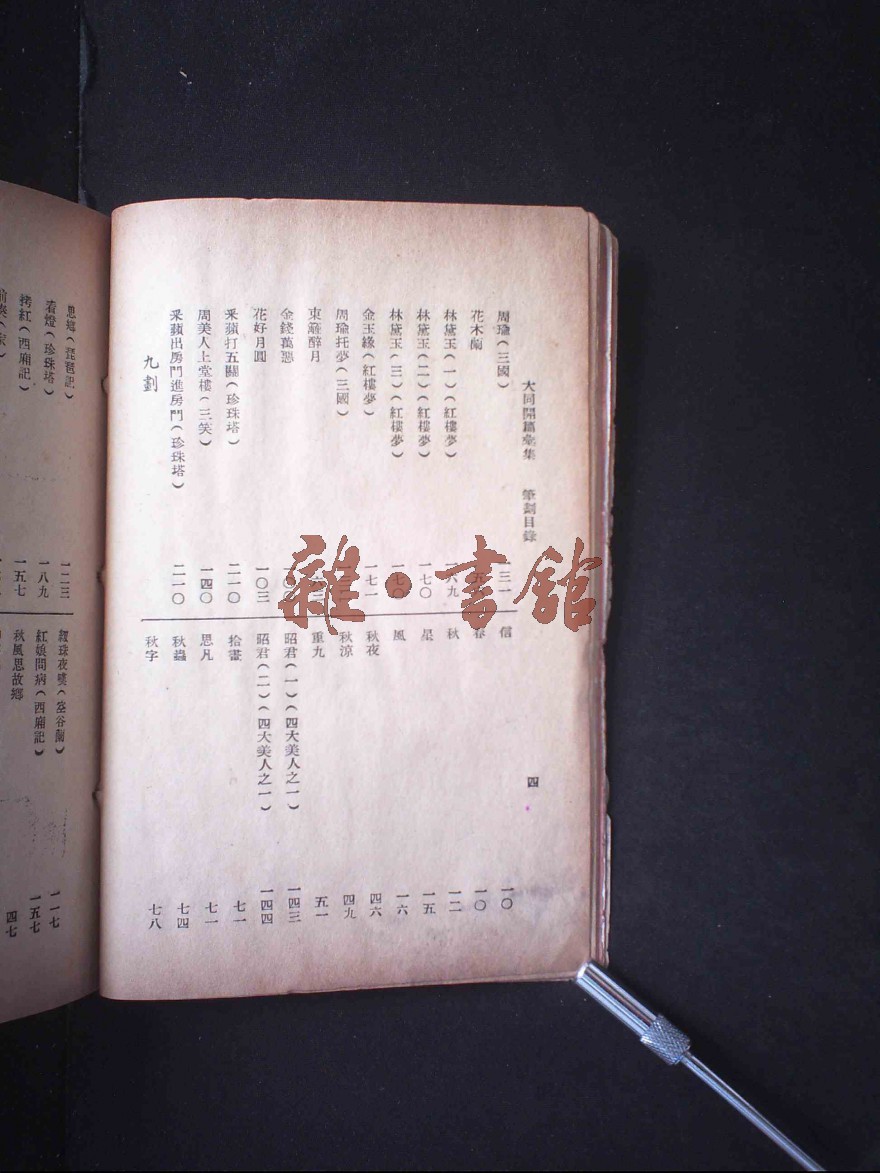 大同開篇彙集 筆劃目錄 四
周瑜(三國) 一三一
花木蘭
林黛玉(一)(紅樓夢) 六九
林黛玉(二)(紅樓夢) 一七〇
林黛玉(三)(紅樓夢) 一七〇
金玉緣(紅樓夢) 一七一
周瑜托夢(三國)
東齋醉月
金錢萬惡
花好月圓 一〇三
采蘋打五關(珍珠塔) 二一〇
周美人上堂樓(三笑) 一四〇
采蘋出房門進房門(珍珠塔) 二一〇
九劃
信 一〇
春 一〇
秋 一二
星 一五
風 一六
秋夜 四六
秋涼 四九
重九 五一
昭君(一)(四大美人之一) 一四三
昭君(二)(四大美人之一) 一四四
拾畫 七一
思凡 七一
秋蟲 七四
秋字 七八
思鄉(琵琶記) 一二三
看燈(珍珠塔) 一八九
拷紅(西廂記) 一五七
紅娘問病(西廂記) 一五七
秋風思故鄉 四七
雜·書館